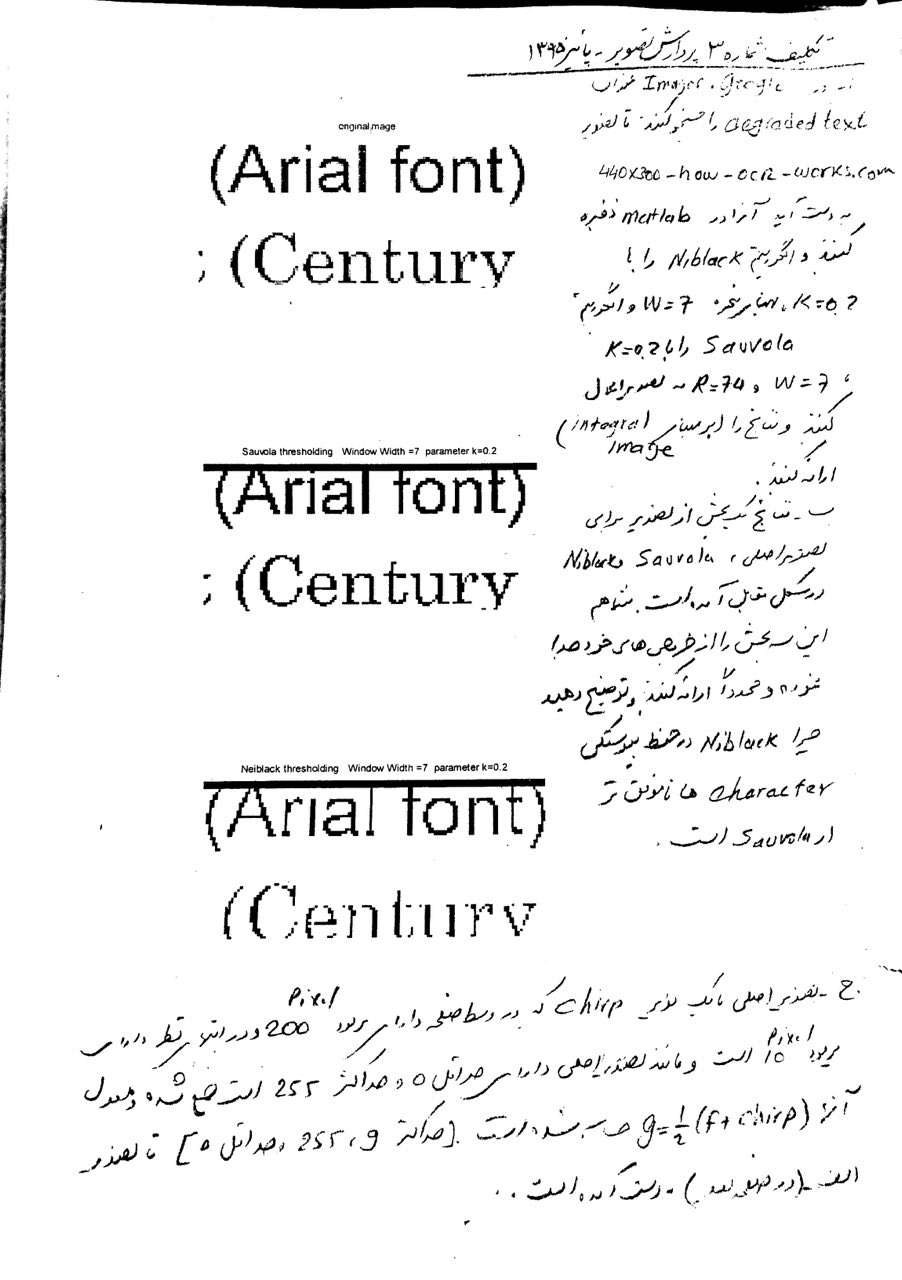 تکلیف شماره ۳ پردازش تصویر - پائیز ۱۳۹۵
در Google Images عنوان
degraded text را جستجو کنید تا تصویر
440x300-how-ocr-works.com
بدست آید آنرا در matlab ذخیره
کنید و الگوریتم Niblack را با
K=0.2 پنجره W=7 و الگوریتم
Sauvola را با K=0.2
W=7 و R=74 به تصویر اعمال
کنید و نتایج را (بر مبنای integral image)
ارائه کنید.
ب - نتایج یک بخش از تصویر برای
تصویر اصلی، Sauvola و Niblack
در شکل مقابل آمده است. شما هم
این سه بخش را از خروجی های خود جدا
نموده و مجدداً ارائه کنید و توضیح دهید
چرا Niblack در حفظ پیوستگی
character ها ناتوان تر
از Sauvola است.
original image
(Arial font)
; (Century
Sauvola thresholding Window Width =7 parameter k=0.2
(Arial font)
; (Century
Neiblack thresholding Window Width =7 parameter k=0.2
(Arial font)
(Century
ج - تصویر اصلی با یک نویز chirp که در وسط صفحه دارای پریود 200 Pixel و در انتهای قطر دارای
پریود 10 Pixel است و مانند تصویر اصلی دارای حداقل 0 و حداکثر 255 است جمع شده و معدل
آنها g=½(f+chirp) حساب شده است. [حداکثر g، 255 و حداقل 0] تا تصویر
الف - (در صفحه بعد) بدست آمده است.